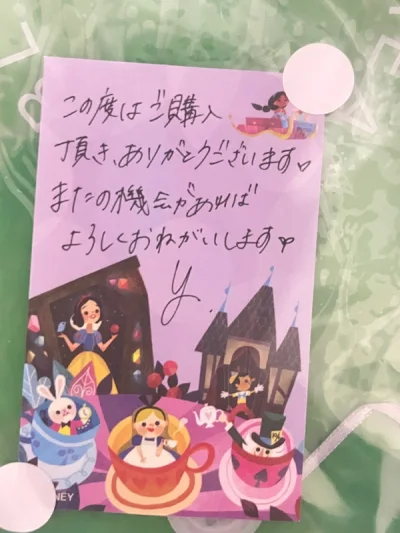 この度はご購入
頂き、ありがとうございます♡
またの機会があれば
よろしくおねがいします♡
y.